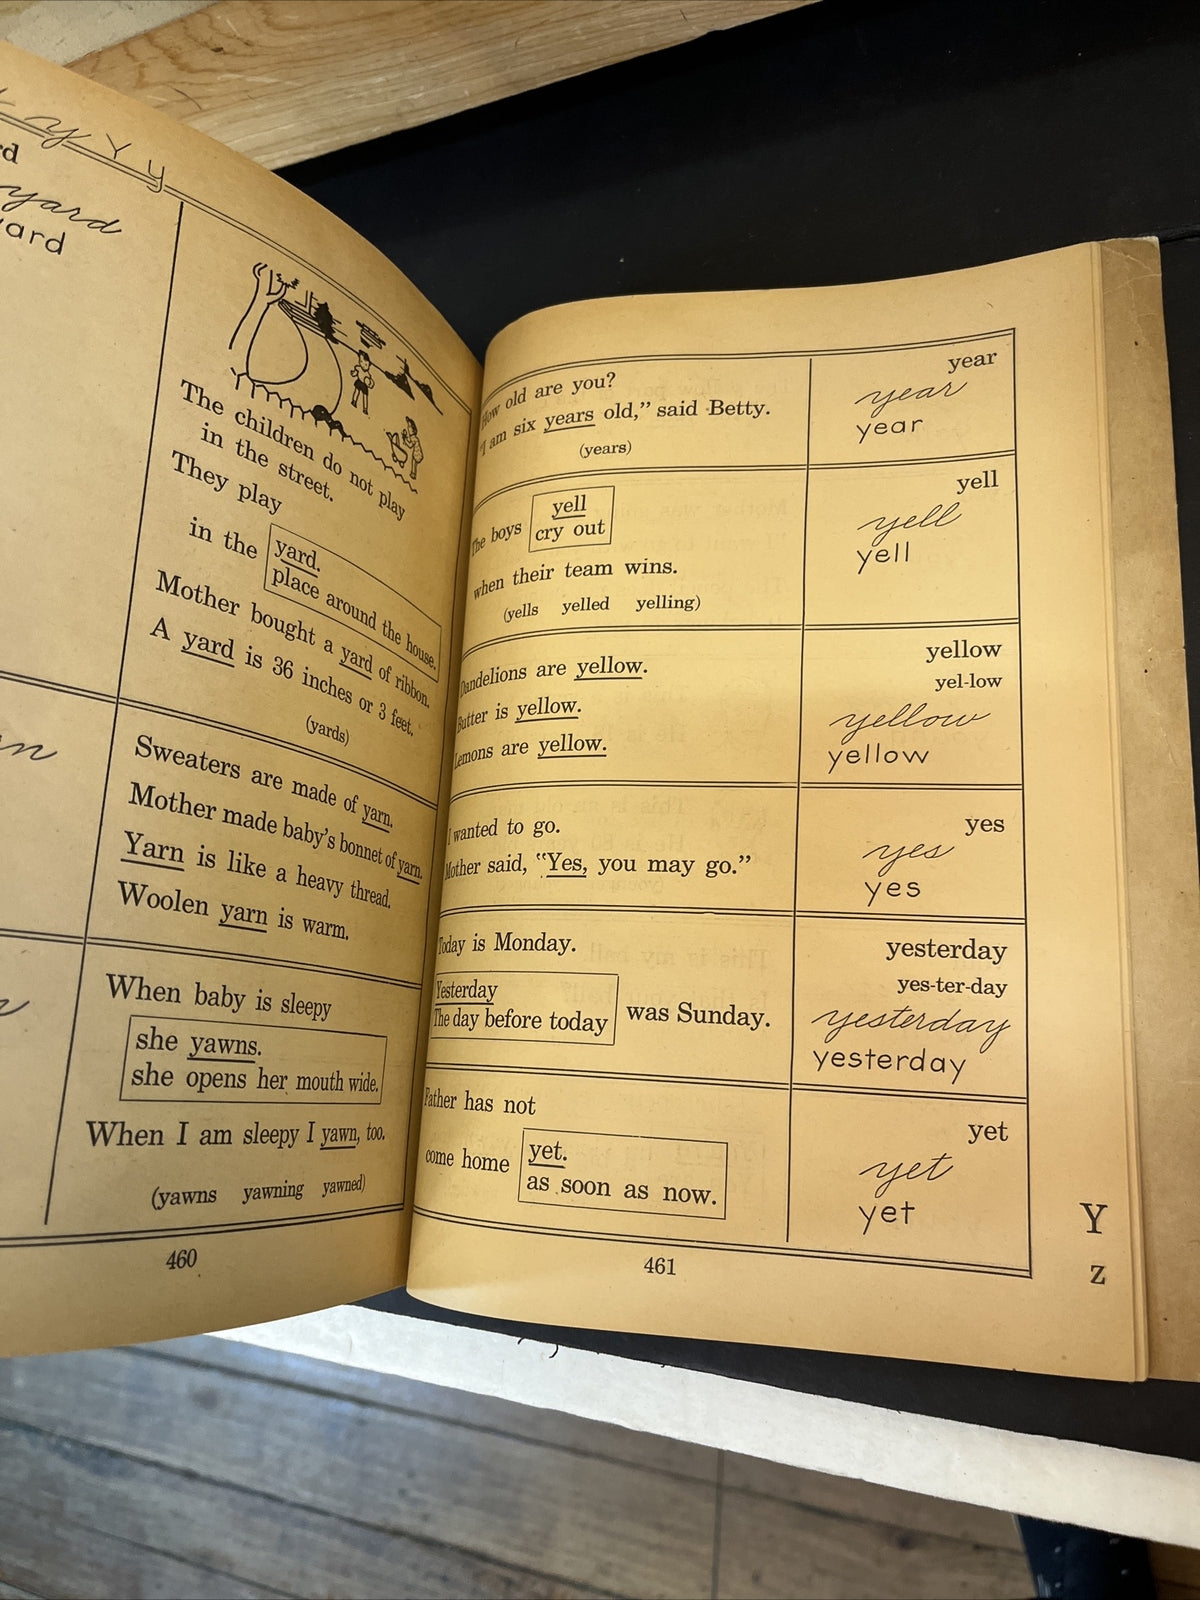 y Y y
yard
ard
The children do not play
in the street.
They play
in the yard.
place around the house.
Mother bought a yard of ribbon.
A yard is 36 inches or 3 feet.
(yards)
Sweaters are made of yarn.
Mother made baby's bonnet of yarn.
Yarn is like a heavy thread.
Woolen yarn is warm.
When baby is sleepy
she yawns.
she opens her mouth wide.
When I am sleepy I yawn, too.
(yawns yawning yawned)
460
How old are you?
"I am six years old," said Betty.
(years)
year
year
year
The boys yell
cry out
when their team wins.
(yells yelled yelling)
yell
yell
yell
Dandelions are yellow.
Butter is yellow.
Lemons are yellow.
yellow
yel-low
yellow
yellow
I wanted to go.
Mother said, "Yes, you may go."
yes
yes
yes
Today is Monday.
Yesterday
The day before today was Sunday.
yesterday
yes-ter-day
yesterday
yesterday
Father has not
come home yet.
as soon as now.
yet
yet
yet
461
Y
z